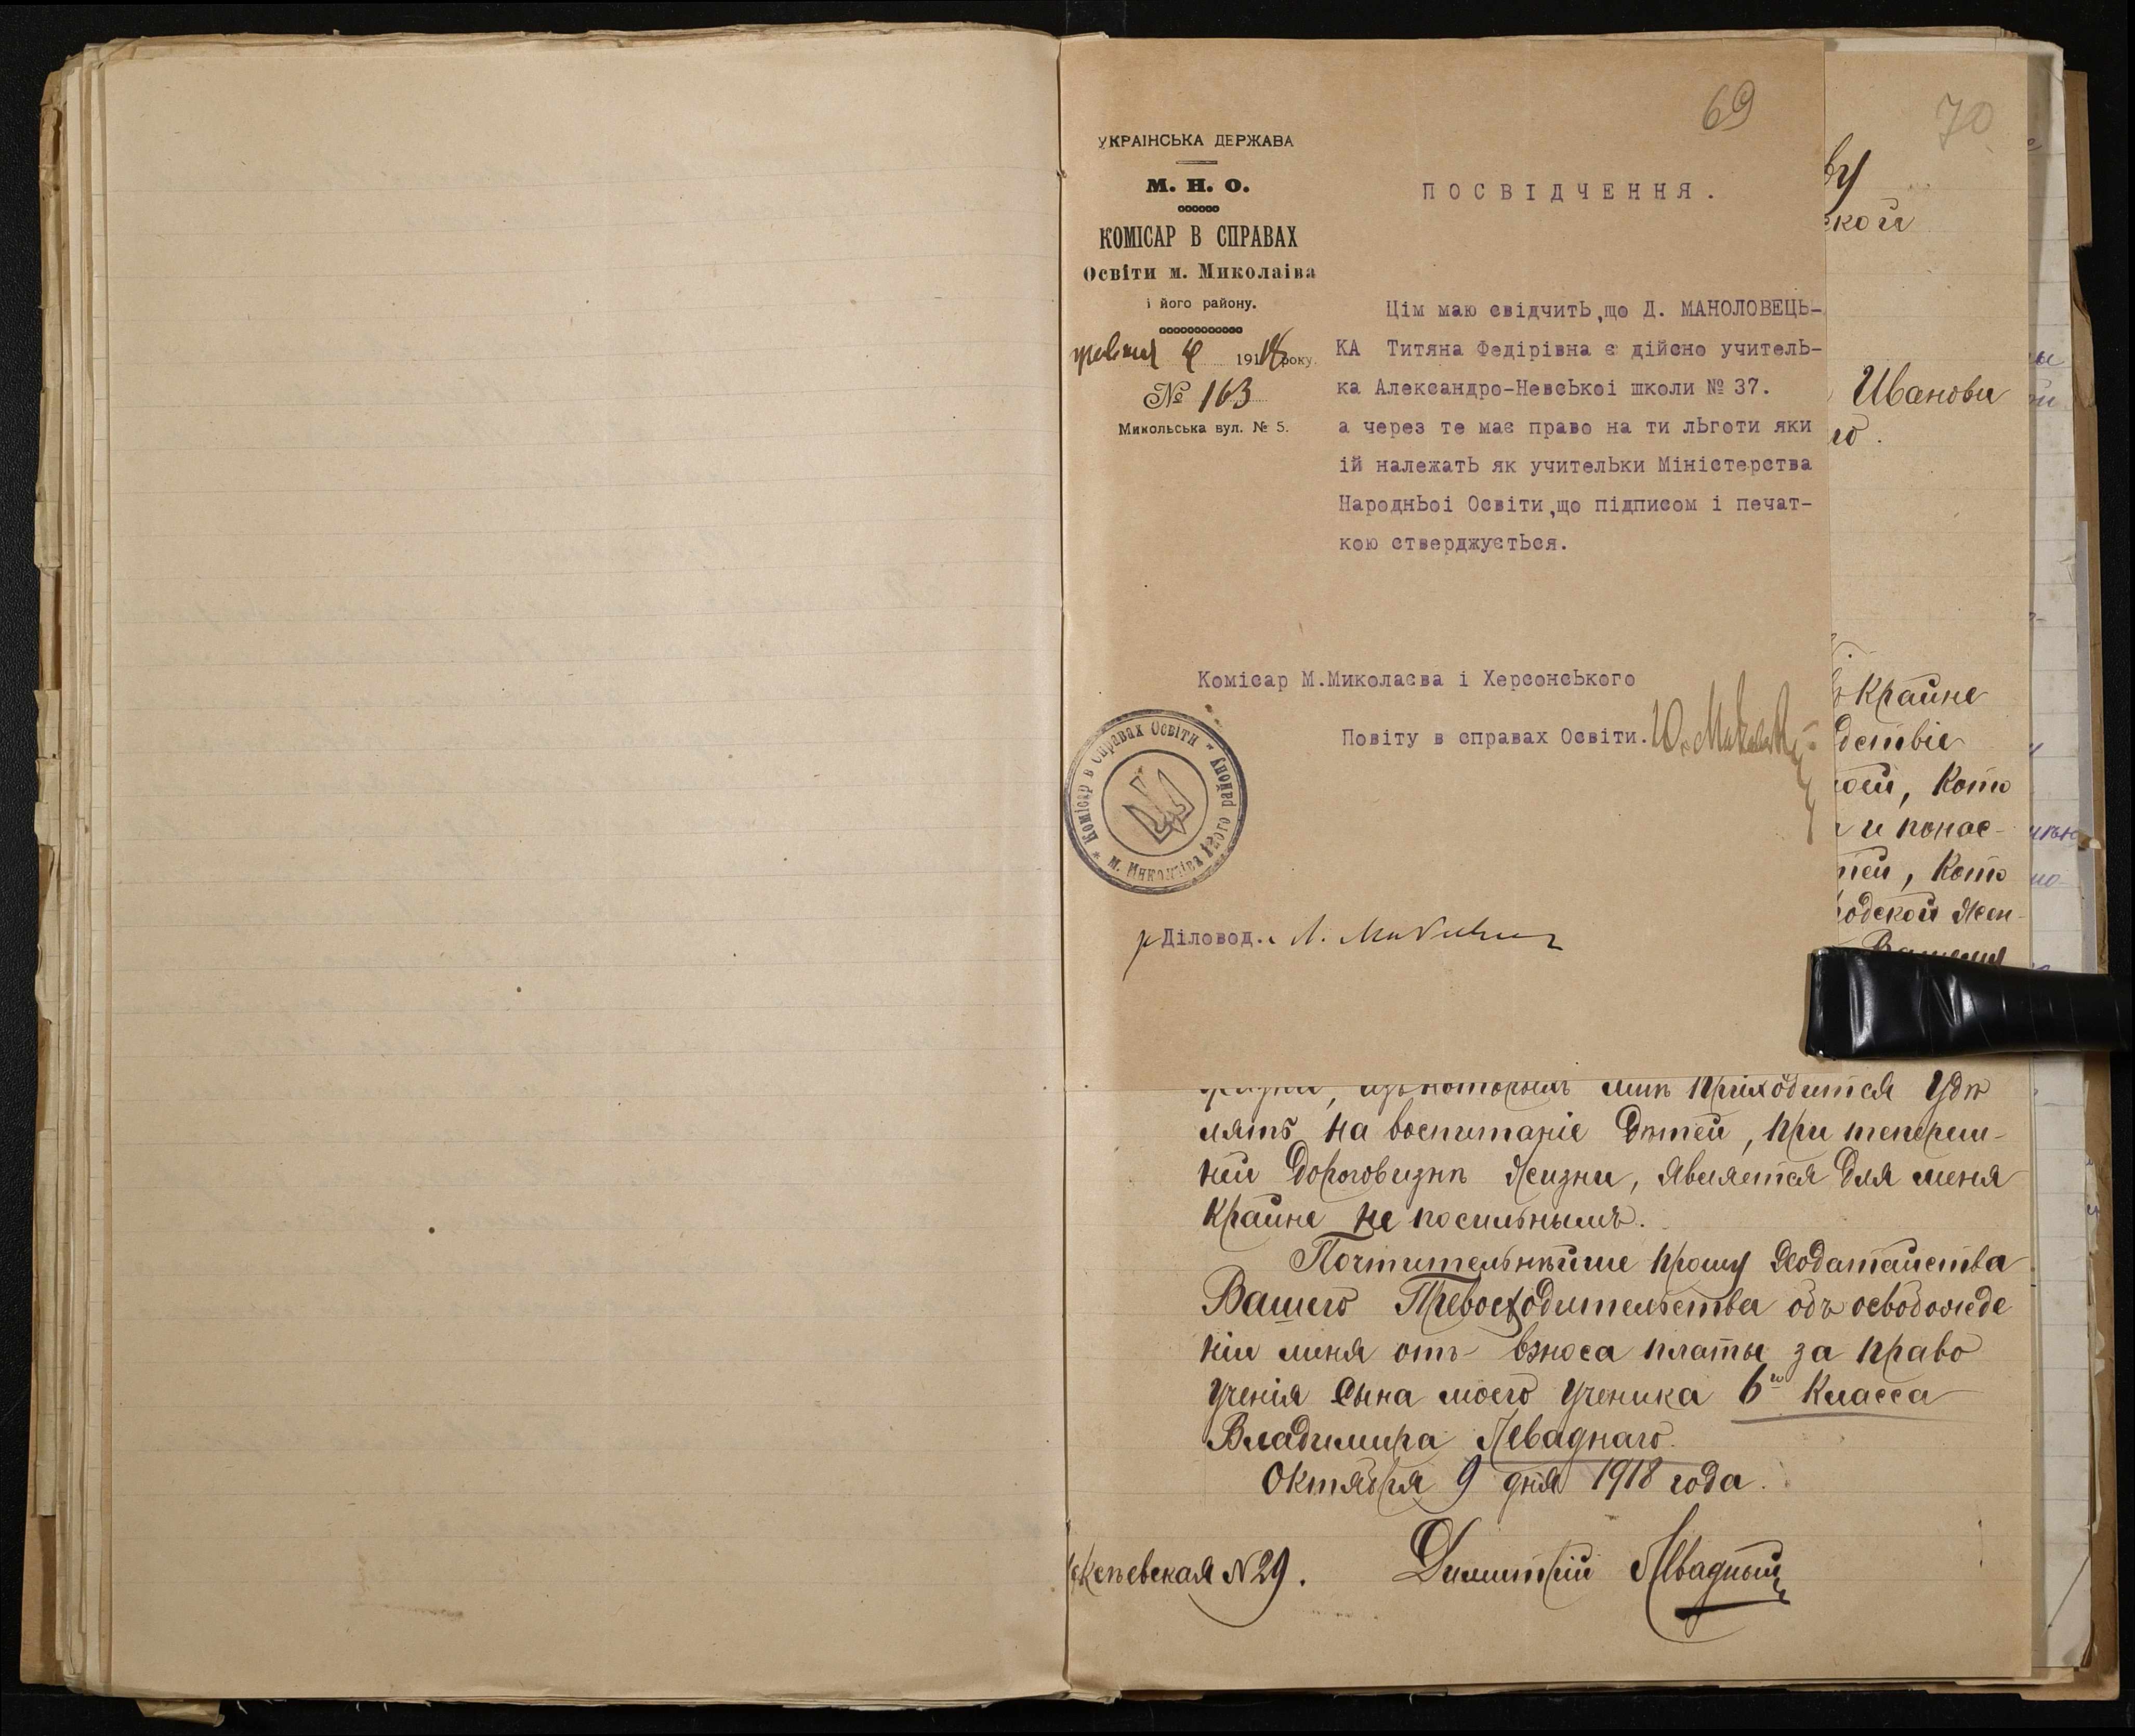 69
УКРАІНСЬКА ДЕРЖАВА
М. Н. О.
КОМІСАР В СПРАВАХ
Освіти м. Миколаіва
і його району.
4 1918 року.
№ 163
Микольська вул. № 5.
ПОСВІДЧЕННЯ.
Цім маю свідчить, що Д. МАНОЛОВЕЦЬ-
КА Титяна Федірівна є дійсно учитель-
ка Александро-Невськоі школи № 37.
а через те має право на ти льготи яки
ій належать як учительки Міністерства
Народньоі Освіти, що підписом і печат-
кою стверджується.
Комісар М.Миколаєва і Херсонського
Повіту в справах Освіти.
* Комісар в справах Освіти " м. Миколаіва і його району
Діловод.
70
ву
ской
Иванови
го.
Крайне
дствіе
, Кото
и понас-
тей, Кото
родской Жен-
приходится удѣ
лять на воспитаніе дѣтей, при тепереш-
ней дороговизнѣ жизни, является для меня
крайне не посильнымъ.
Почтительнѣйше прошу ходатайства
Вашего Превосходительства объ освобожде
ніи меня отъ взноса платы за право
ученія сына моего ученика 6го Класса
Владимира Леваднаго.
Октября 9 дня 1918 года.
№ 29.
Димитрій Левадный